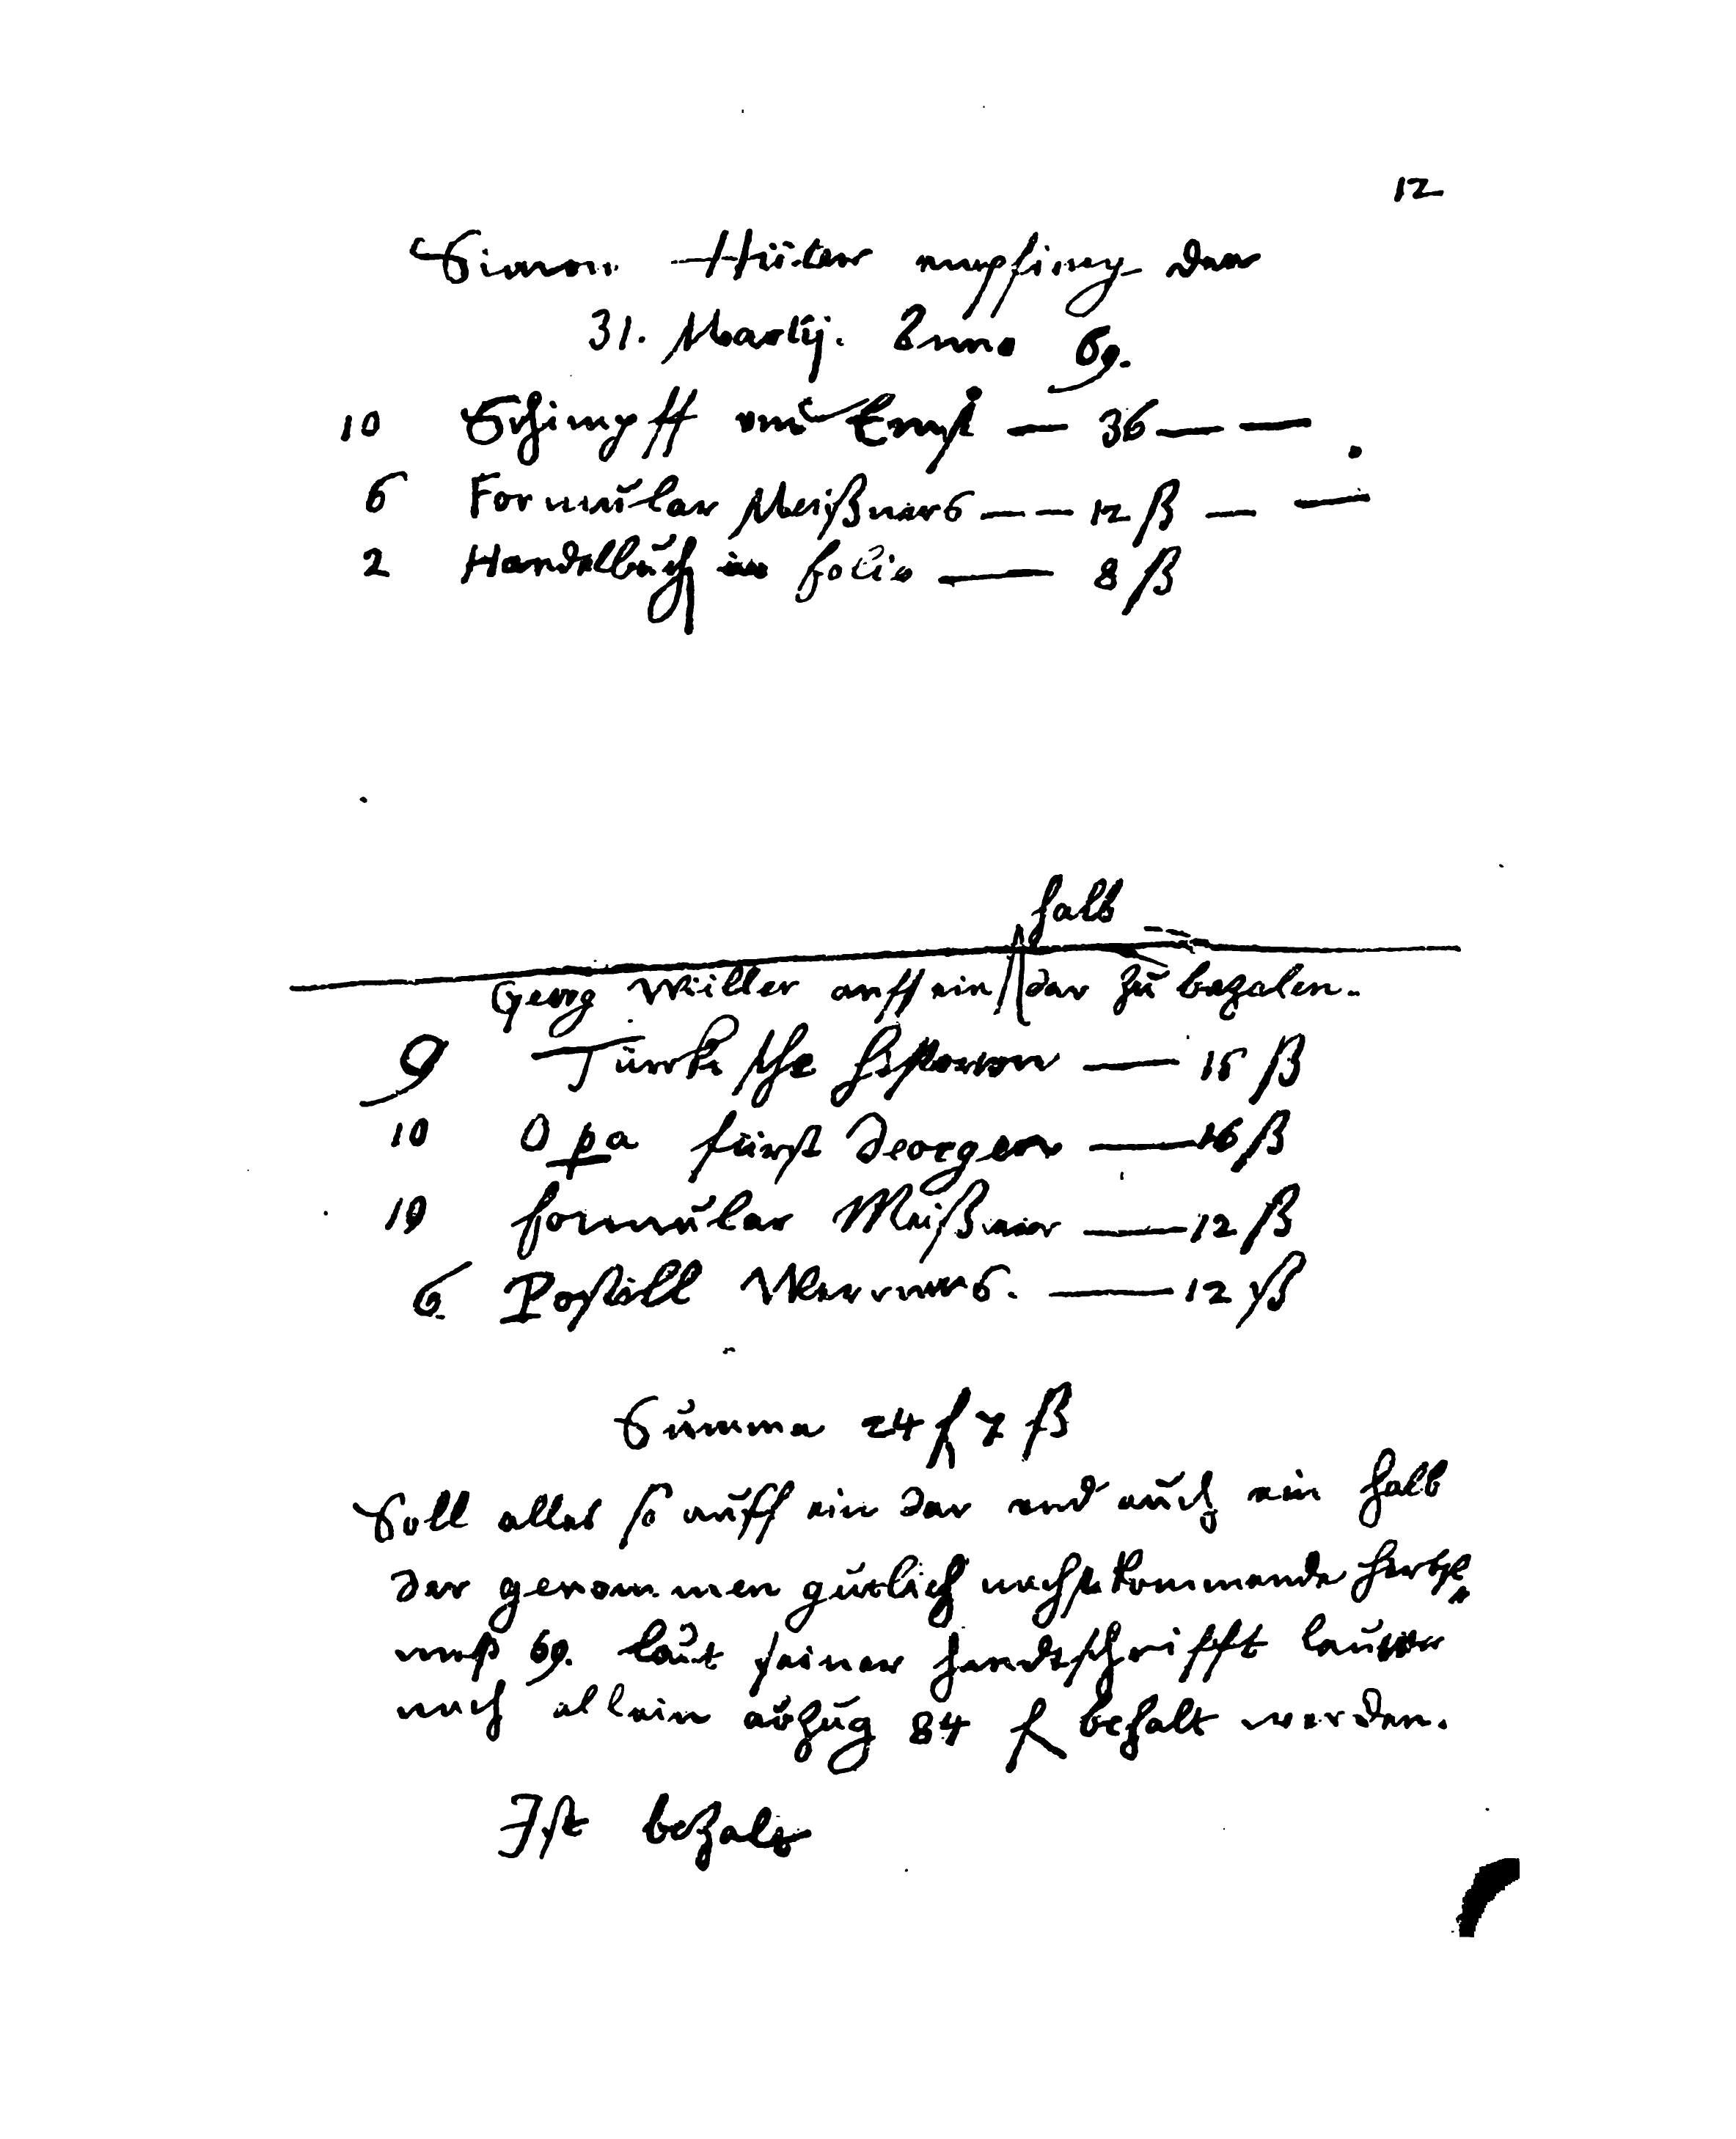 12
Simon Hüter empfing den
31. Martij. Anno 69.
10 Schimpff vnd Ernst — 36 — —
6 Formular Meißners — — 12 ß — —
2 Handelbuch in folio — 8 ß
halb
Georg Willer auff ein Jar zu bezalen.
9 Türkische historien — 15 ß
10 Opa fürst Georgen — 16 ß
10 formular Meißner — 12 ß
6 Postill — 12 ß
Summa 24 f 7 ß
Soll alles so auff ein Jar vnd auch ein halb
Jar genommen gütlich nechstkommende herbst
meß 69. laut seiner handtschrifft
nach allem abzug 84 f bezalt werden.
Ist bezalt